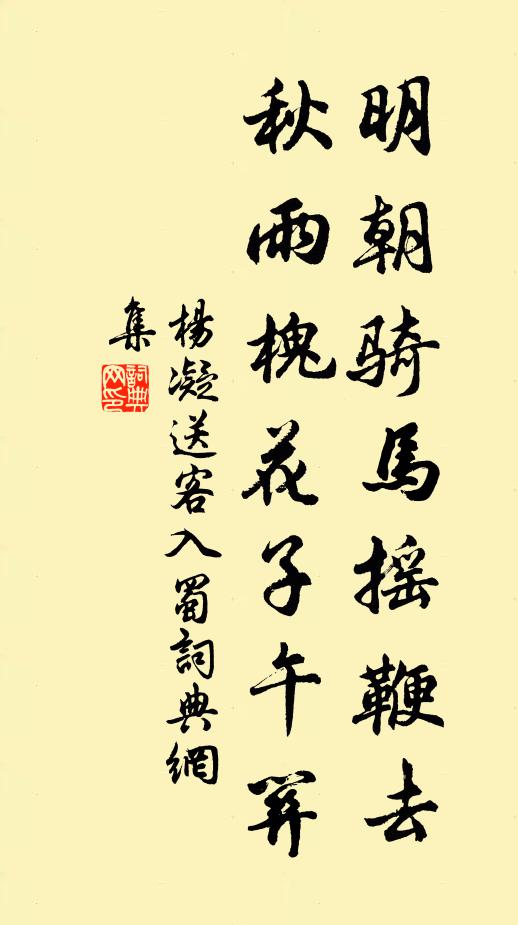 明朝騎馬摇鞭去
秋雨槐花子午關
楊凝送客入蜀詞典網
集
詞典
网印